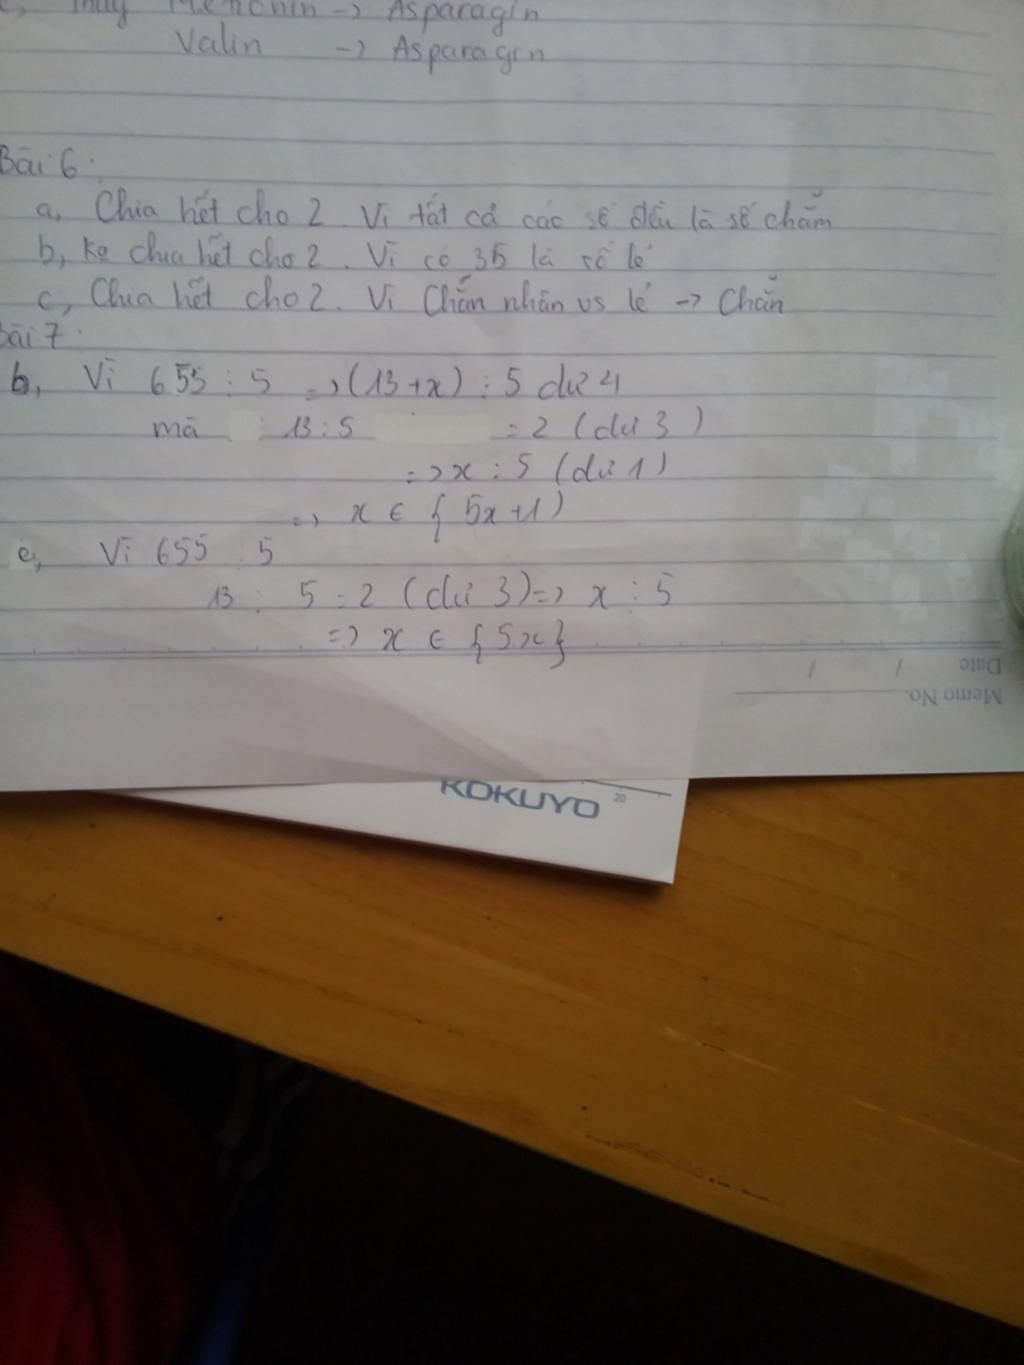 Valin -> Asparagin
-> Asparagin
Bài 6:
a, Chia hết cho 2. Vì tất cả các số đều là số chẵn
b, ko chia hết cho 2. Vì có 35 là số lẻ
c, Chia hết cho 2. Vì Chẵn nhân vs lẻ -> Chẵn
Bài 7:
b, Vì 655 : 5 => (13+x) : 5 dư 4
mà 13 : 5 = 2 (dư 3)
=> x : 5 (dư 1)
=> x ∈ { 5x+1)
e, Vì 655 : 5
13 : 5 = 2 (dư 3) => x : 5
=> x ∈ {5x}
Date / /
Memo No.
KOKUYO
20